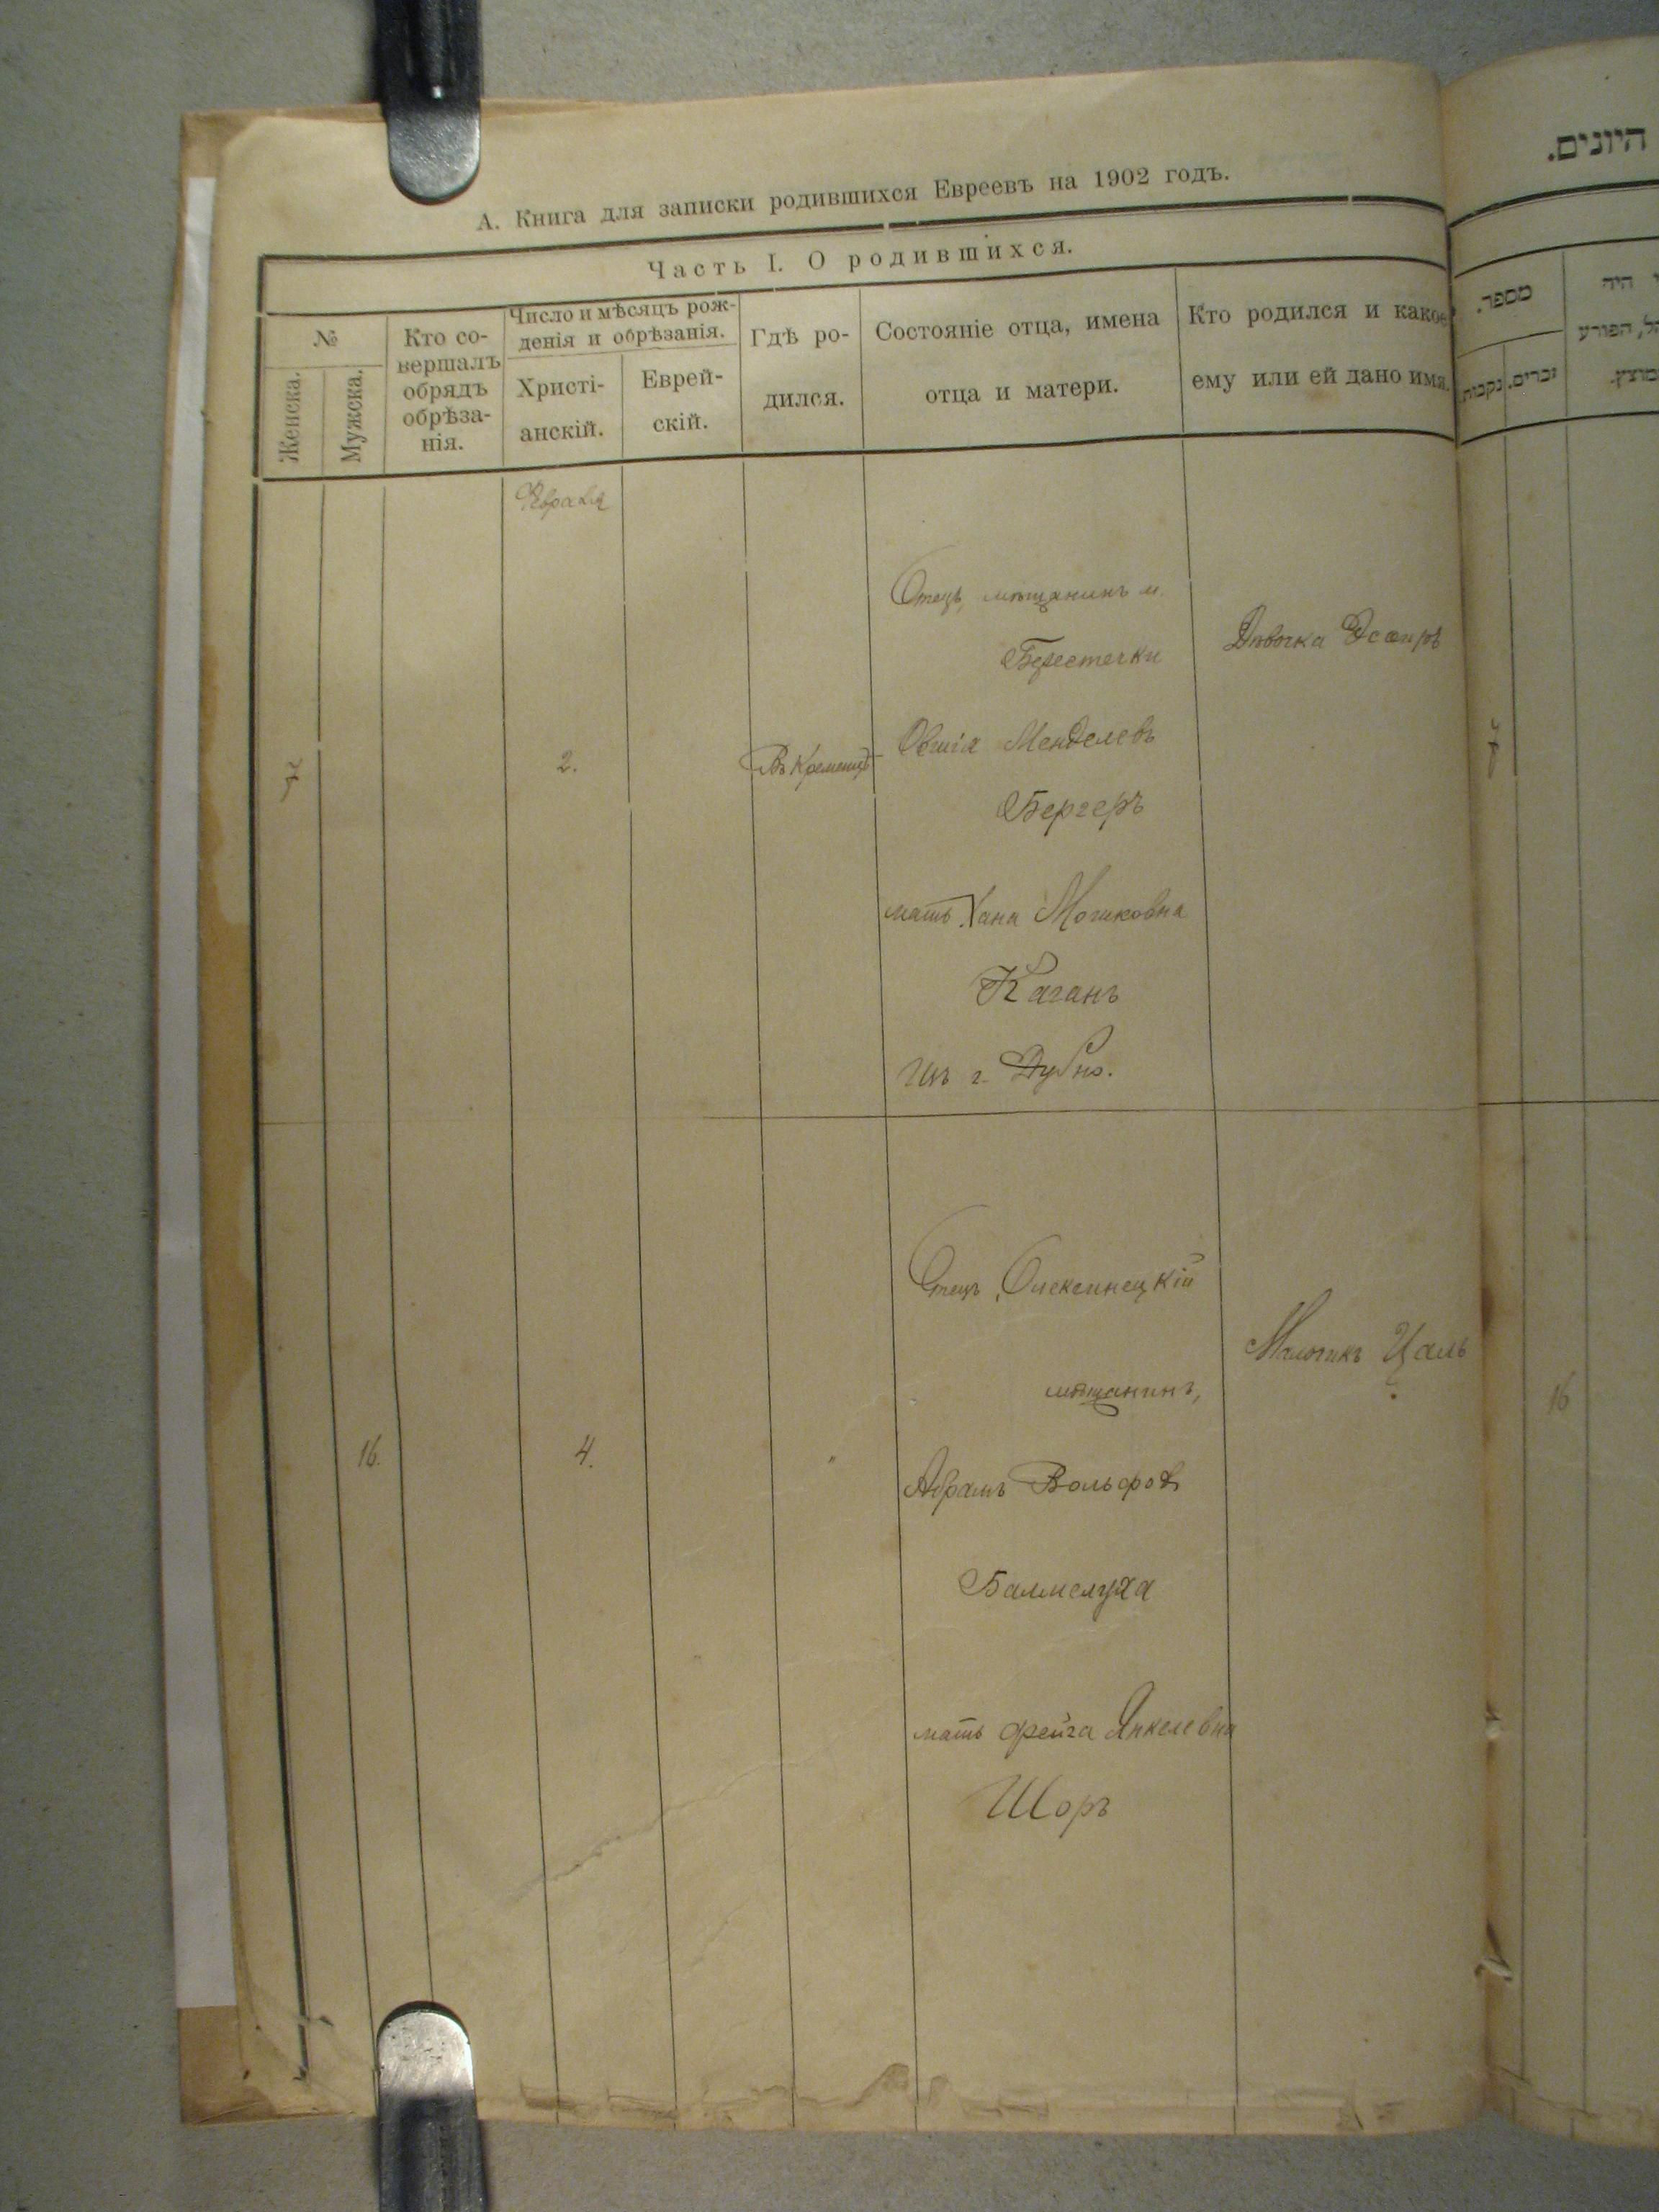 А. Книга для записки родившихся Евреевъ на 1902 годъ.
Часть I. О родившихся.
№
Женска.
Мужска.
Кто со-
вершалъ
обрядъ
обрѣза-
нія.
Число и мѣсяцъ рож-
денія и обрѣзанія.
Христі-
анскій.
Еврей-
скій.
Гдѣ ро-
дился.
Состояніе отца, имена
отца и матери.
Кто родился и какое
ему или ей дано имя.
Февраля
7
2.
Въ Кременцѣ
Отецъ мѣщанинъ м.
Берестечки
Овшія Менделевъ
Бергеръ
мать Хана Мошковна
Каганъ
изъ г. Дубно.
Дѣвочка Эсѳиръ
16.
4.
"
Отецъ Олексинецкій
мѣщанинъ,
Абрамъ Вольфовъ
Балмелуха
мать Фейга Янкелевна
Шоръ
Мальчикъ Цаль
היונים.
מספר.
זכרים.
נקבות.
היה
הפורע
ומוצץ.
7
16